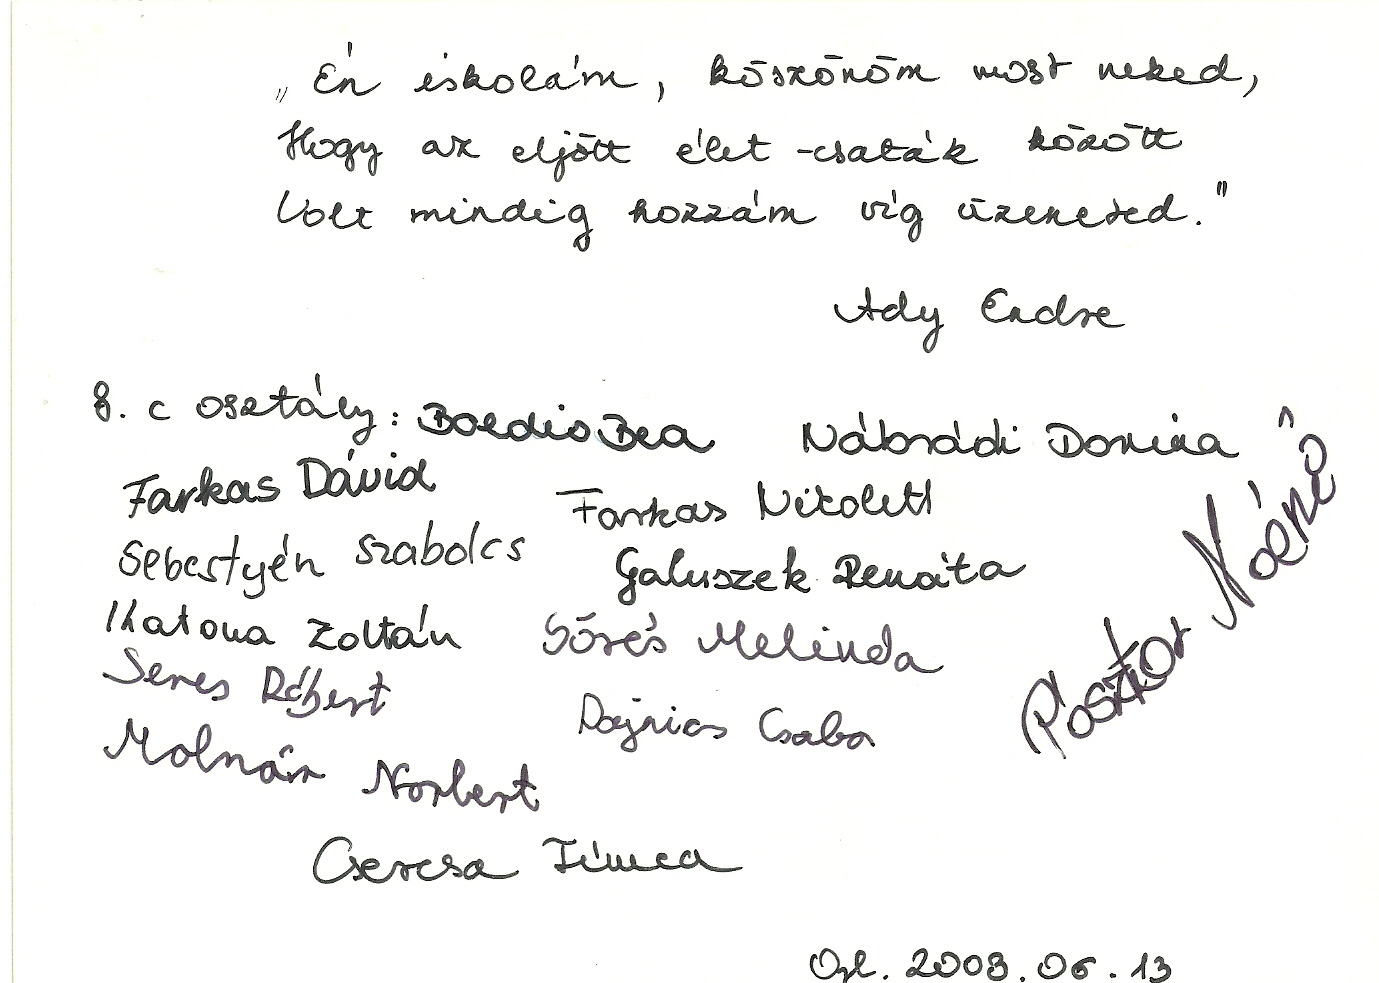 „Én iskolám, köszönöm most neked,
Hogy az eljött élet-csaták között
Volt mindig hozzám víg üzeneted."
Ady Endre
8. c osztály: Boldis Bea Nábrádi Donina
Farkas Dávid Farkas Nikolett
Sebestyén Szabolcs Galuszek Renáta
Katona Zoltán Sőrés Melinda
Seres Róbert Csaba
Molnár Norbert
Csercsa Tímea
Pásztor Noémi
2008.06.13